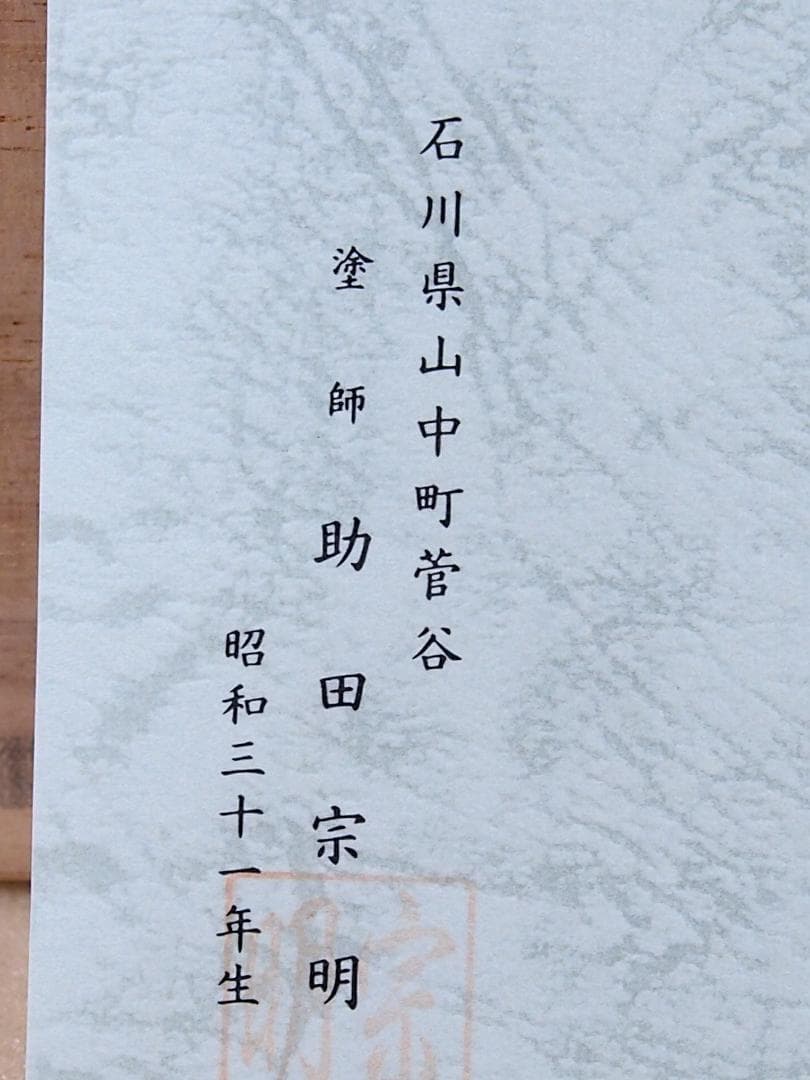 石川県山中町菅谷
塗師 助田宗明
昭和三十一年生
宗明